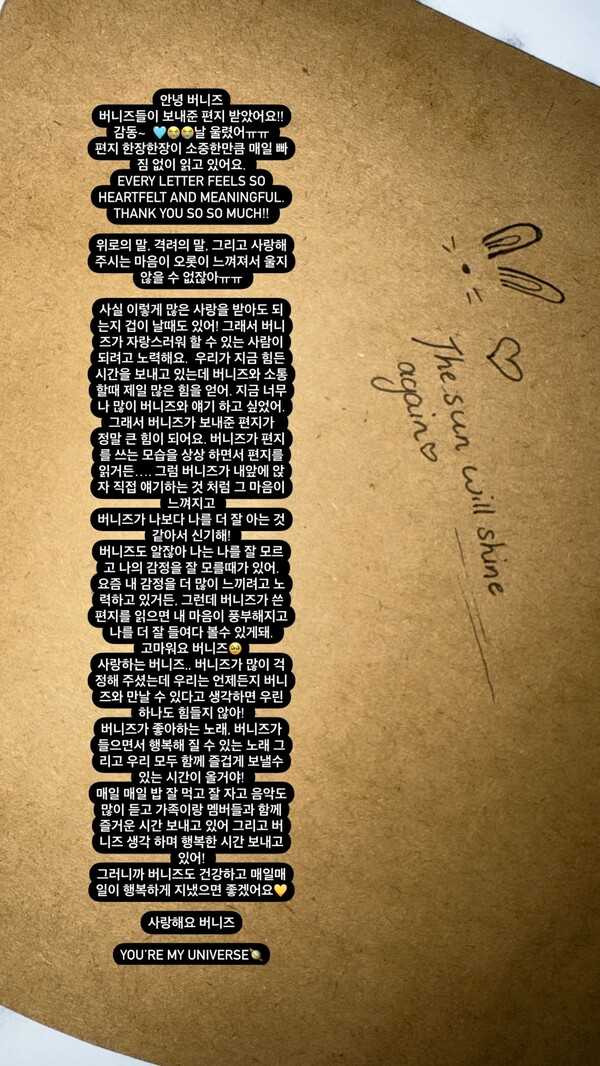 안녕 버니즈
버니즈들이 보내준 편지 받았어요!!
감동~ 🩵😭😭날 울렸어ㅠㅠ
편지 한장한장이 소중한만큼 매일 빠
짐 없이 읽고 있어요.
EVERY LETTER FEELS SO
HEARTFELT AND MEANINGFUL.
THANK YOU SO SO MUCH!!
위로의 말. 격려의 말. 그리고 사랑해
주시는 마음이 오롯이 느껴져서 울지
않을 수 없잖아ㅠㅠ
사실 이렇게 많은 사랑을 받아도 되
는지 겁이 날때도 있어! 그래서 버니
즈가 자랑스러워 할 수 있는 사람이
되려고 노력해요. 우리가 지금 힘든
시간을 보내고 있는데 버니즈와 소통
할때 제일 많은 힘을 얻어. 지금 너무
나 많이 버니즈와 얘기 하고 싶었어.
그래서 버니즈가 보내준 편지가
정말 큰 힘이 되어요. 버니즈가 편지
를 쓰는 모습을 상상 하면서 편지를
읽거든.... 그럼 버니즈가 내앞에 앉
자 직접 얘기하는 것 처럼 그 마음이
느껴지고
버니즈가 나보다 나를 더 잘 아는 것
같아서 신기해!
버니즈도 알잖아 나는 나를 잘 모르
고 나의 감정을 잘 모를때가 있어.
요즘 내 감정을 더 많이 느끼려고 노
력하고 있거든. 그런데 버니즈가 쓴
편지를 읽으면 내 마음이 풍부해지고
나를 더 잘 들여다 볼수 있게돼.
고마워요 버니즈🥹
사랑하는 버니즈.. 버니즈가 많이 걱
정해 주셨는데 우리는 언제든지 버니
즈와 만날 수 있다고 생각하면 우린
하나도 힘들지 않아!
버니즈가 좋아하는 노래. 버니즈가
들으면서 행복해 질 수 있는 노래 그
리고 우리 모두 함께 즐겁게 보낼수
있는 시간이 올거야!
매일 매일 밥 잘 먹고 잘 자고 음악도
많이 듣고 가족이랑 멤버들과 함께
즐거운 시간 보내고 있어 그리고 버
니즈 생각 하며 행복한 시간 보내고
있어!
그러니까 버니즈도 건강하고 매일매
일이 행복하게 지냈으면 좋겠어요💛
사랑해요 버니즈
YOU'RE MY UNIVERSE🪐
The sun will shine
again♡